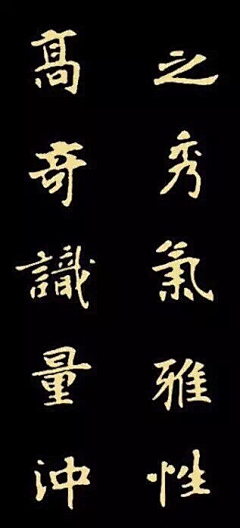 之秀氣雅性
高奇識量沖